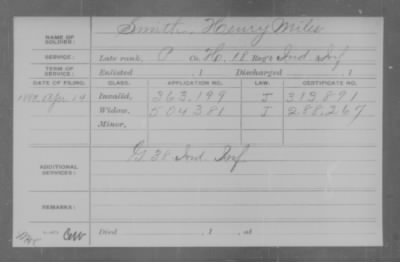 NAME OF SOLDIER: Smith, Henry Miles
SERVICE: Late rank, P Co. H, 18 Reg't Ind Inf
TERM OF SERVICE: Enlisted , 1 Discharged , 1
DATE OF FILING. CLASS. APPLICATION NO. LAW. CERTIFICATE NO.
Apr. 14 Invalid, 363,199 J 313,891
Widow, 504381 J 288,267
Minor,
ADDITIONAL SERVICES: G 38 Ind. Inf
REMARKS:
Died , 1 , at